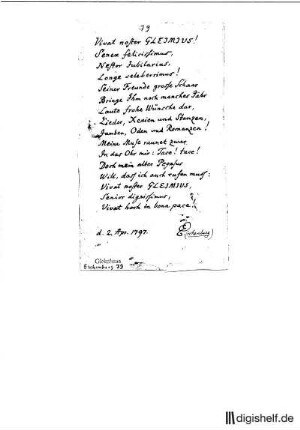 79
Vivat noster GLEIMIUS!
Senex felicissimus,
Nestor Jubilarius,
Longe celeberrimus!
Seiner Freunde große Schaar
Bringe Ihm noch manches Jahr
Laute frohe Wünsche dar,
Lieder, Xenien und Stanzen,
Jamben, Oden und Romanzen!
Meine Muse raunet zwar
In das Ohr mir: Tace! tace!
Doch mein alter Pegasus
Will, daß ich auch rufen muß:
Vivat noster GLEIMIUS,
Senior dignissimus,
Vivat hoch in bona pace!
d. 2. Apr. 1797.
Eschenburg
Gleimhaus
Eschenburg 79
digishelf.de